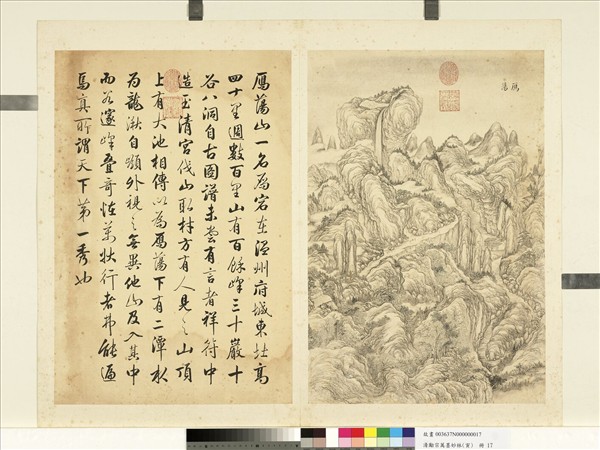 鴈蕩
鴈蕩山一名鴈宕在溫州府城東北高
四十里週數百里山有百餘峰三十巖十
谷八洞自古圖譜未嘗有言者祥符中
造玉清宮伐山取材方有人見之山頂
上有大池相傳以為鴈蕩下有二潭水
為龍湫自嶺外視之無異他山及入其中
而谷邃峰疊奇怪萬狀行者弗能遍
焉真所謂天下第一秀也
故畫 003637N000000017
冊 17